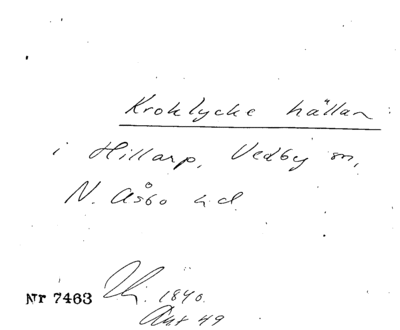 Kroklycke hällan
i Hillarp, Vedby sn,
N. Åsbo hd
Nr 7463
1840.
Ant 49